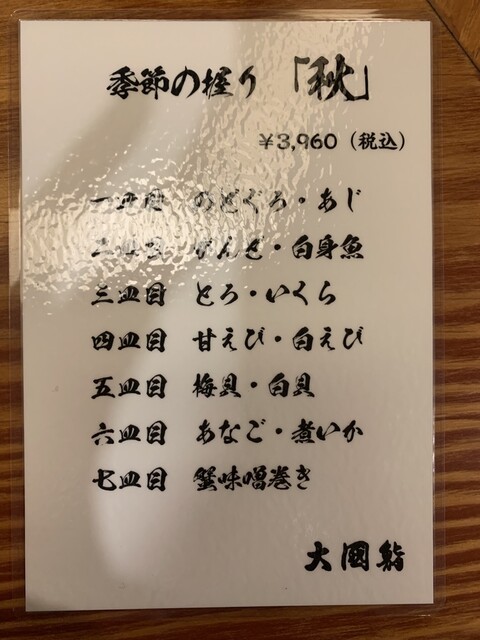 季節の握り「秋」
￥3,960（税込）
一皿目 のどぐろ・あじ
二皿目 がんど・白身魚
三皿目 とろ・いくら
四皿目 甘えび・白えび
五皿目 梅貝・白貝
六皿目 あなご・煮いか
七皿目 蟹味噌巻き
大國鮨